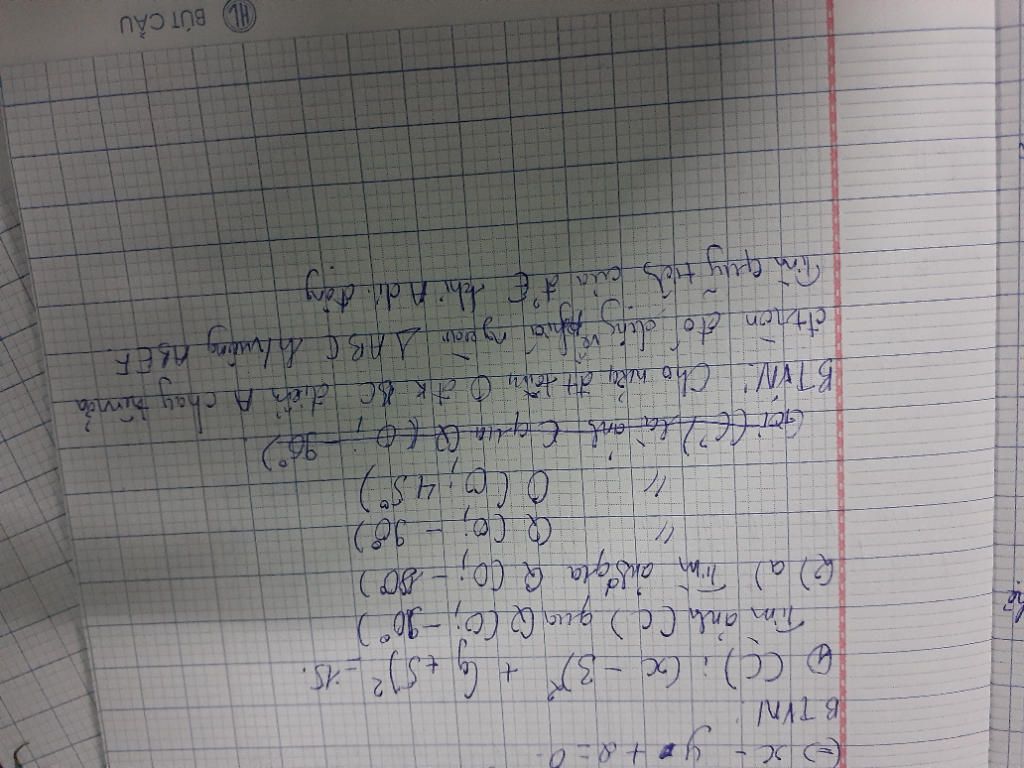 (=) x - y + 2 = 0
BTVN:
① (C): (x - 3)² + (y + 5)² = 15.
Tìm ảnh (C) qua Q(O; -90°)
2) a) Tìm ảnh d qua Q(O; -90°)
" Q(O; -90°)
" Q(O; 45°)
Gọi (C') là ảnh C qua Q(O; -90°)
BTVN: Cho nửa đt tâm O đk BC điểm A chạy trên nửa
đtròn đó dựng về phía ngoài ΔABC h/vuông ABEF.
Tìm quỹ tích của đ' E khi A di động.
HL BÚT CẦU